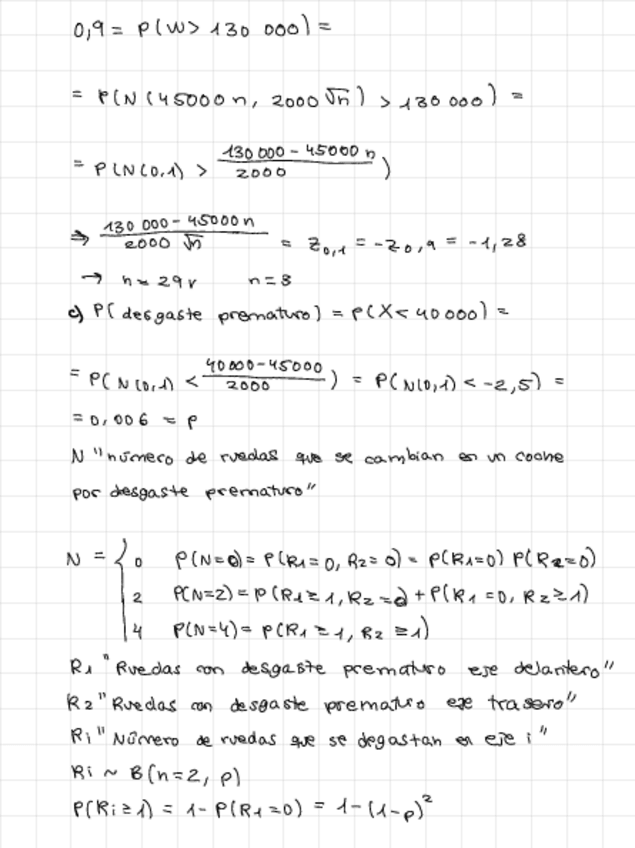 0,9 = P(W > 130 000) =
= P(N(45000n, 2000√n) > 130 000) =
= P(N(0,1) > (130 000 - 45000 n)/2000)
⇒ (130 000 - 45000n)/(2000 √n) = Z0,1 = -Z0,9 = -1,28
→ n = 29r n=3
c) P(desgaste prematuro) = P(X < 40 000) =
= P(N(0,1) < (40000-45000)/2000) = P(N(0,1) < -2,5) =
= 0,006 = p
N "número de ruedas que se cambian en un coche
por desgaste prematuro"
N = { 0 P(N=0) = P(R1=0, R2=0) = P(R1=0) P(R2=0)
2 P(N=2) = P(R1≥1, R2=0) + P(R1=0, R2≥1)
4 P(N=4) = P(R1≥1, R2≥1)
R1 "Ruedas con desgaste prematuro eje delantero"
R2 "Ruedas con desgaste prematuro eje trasero"
Ri "Número de ruedas que se degastan en eje i"
Ri ~ B(n=2, p)
P(Ri≥1) = 1-P(R1=0) = 1-(1-p)²